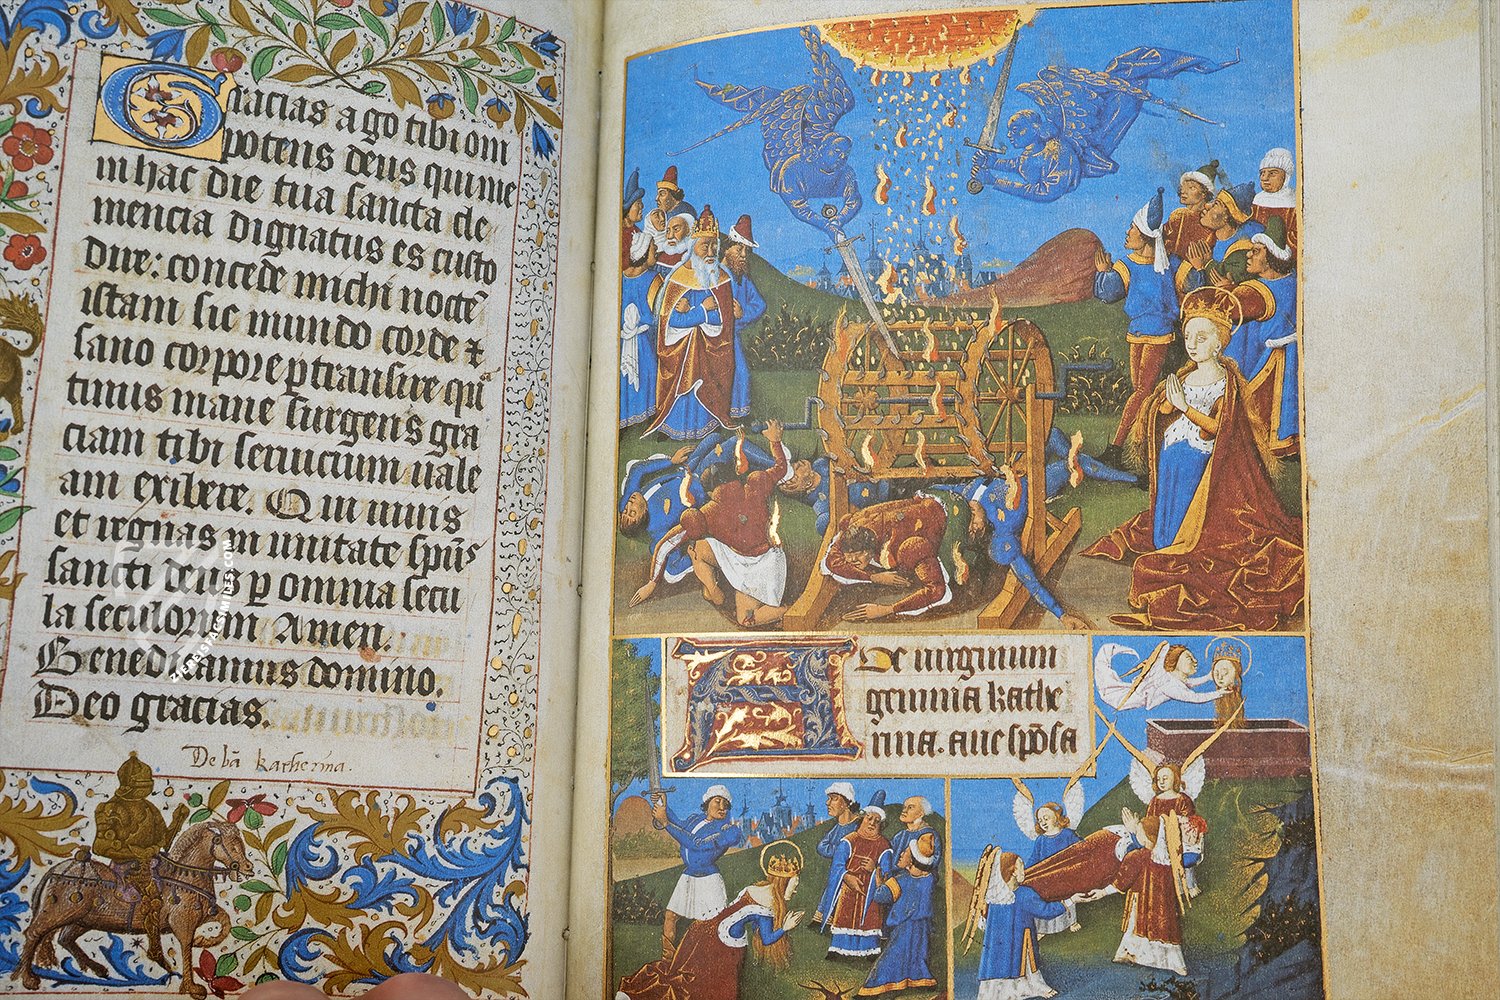 Gracias ago tibi om
potens deus qui me
in hac die tua sancta cle
mencia dignatus es custo
dire: concede michi noctē
istam sic mundo corde ⁊
sano corpore ꝑtransire qua
tinus mane surgens gra
ciam tibi seruicium uale
am exibere. Qui uiuis
et regnas in unitate spūs
sancti deus ꝑ omnia secu
la seculorum Amen.
Benedicamus domino.
Deo gracias.
De bā katherina.
De uirginum
gemma kathe
rina. aue spōsa